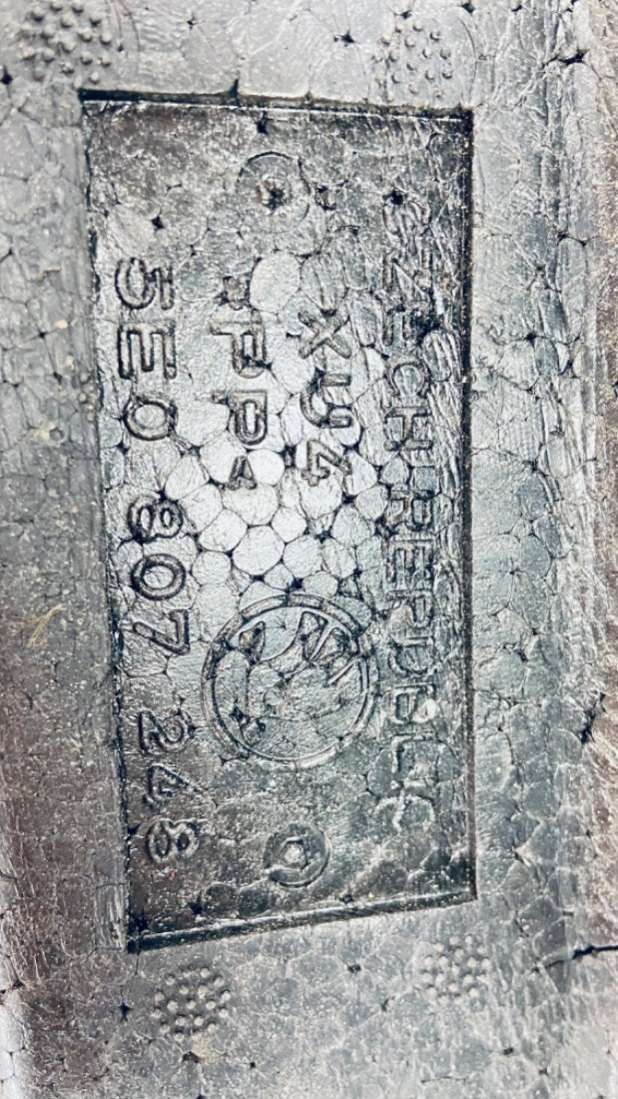 CZECH REPUBLIC
XU4
>PP<
5E0 807 248